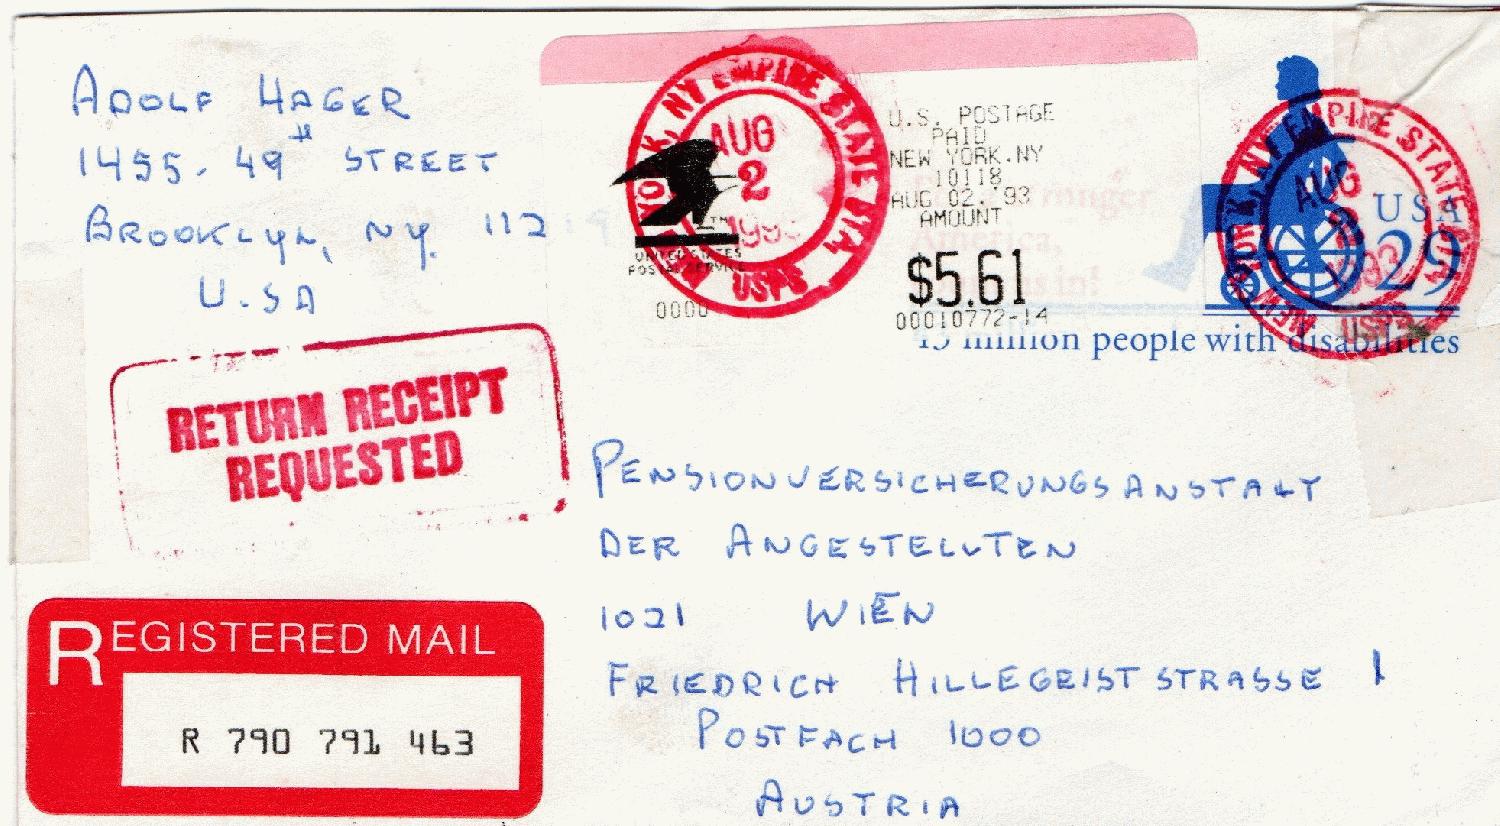 ADOLF HAGER
1455. 49 STREET
BROOKLYN, NY. 112
U.SA
NEW YORK, NY EMPIRE STATE STA.
AUG
2
USPS
UNITED STATES
POSTAL SERVICE
0000
U.S. POSTAGE
PAID
NEW YORK.NY
10118
AUG 02.'93
AMOUNT
$5.61
00010772-14
NEW YORK, NY EMPIRE STATE STA.
AUG
2
USPS
USA
29
America,
million people with disabilities
RETURN RECEIPT
REQUESTED
REGISTERED MAIL
R 790 791 463
PENSIONVERSICHERUNGSANSTALT
DER ANGESTELLTEN
1021 WIEN
FRIEDRICH HILLEGEIST STRASSE 1
POSTFACH 1000
AUSTRIA